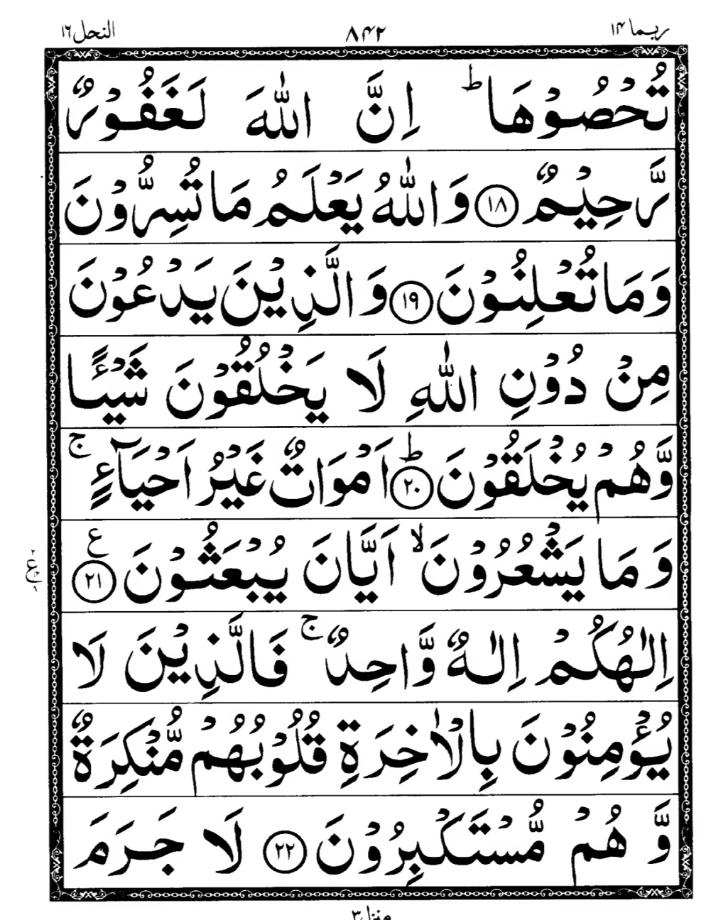 ربما ۱۴ ۸۴۲ النحل ۱۶
تُحْصُوْهَا ؕ اِنَّ اللّٰهَ لَغَفُوْرٌ
رَّحِيْمٌ ﴿۱۸﴾ وَاللّٰهُ يَعْلَمُ مَا تُسِرُّوْنَ
وَمَا تُعْلِنُوْنَ ﴿۱۹﴾ وَالَّذِيْنَ يَدْعُوْنَ
مِنْ دُوْنِ اللّٰهِ لَا يَخْلُقُوْنَ شَيْـًٔا
وَّهُمْ يُخْلَقُوْنَ ؕ﴿۲۰﴾ اَمْوَاتٌ غَيْرُ اَحْيَآءٍ ۚ
وَمَا يَشْعُرُوْنَ ۙ اَيَّانَ يُبْعَثُوْنَ ﴿۲۱﴾ ع
اِلٰهُكُمْ اِلٰهٌ وَّاحِدٌ ۚ فَالَّذِيْنَ لَا
يُؤْمِنُوْنَ بِالْاٰخِرَةِ قُلُوْبُهُمْ مُّنْكِرَةٌ
وَّهُمْ مُّسْتَكْبِرُوْنَ ﴿۲۲﴾ لَا جَرَمَ
منزل ۳